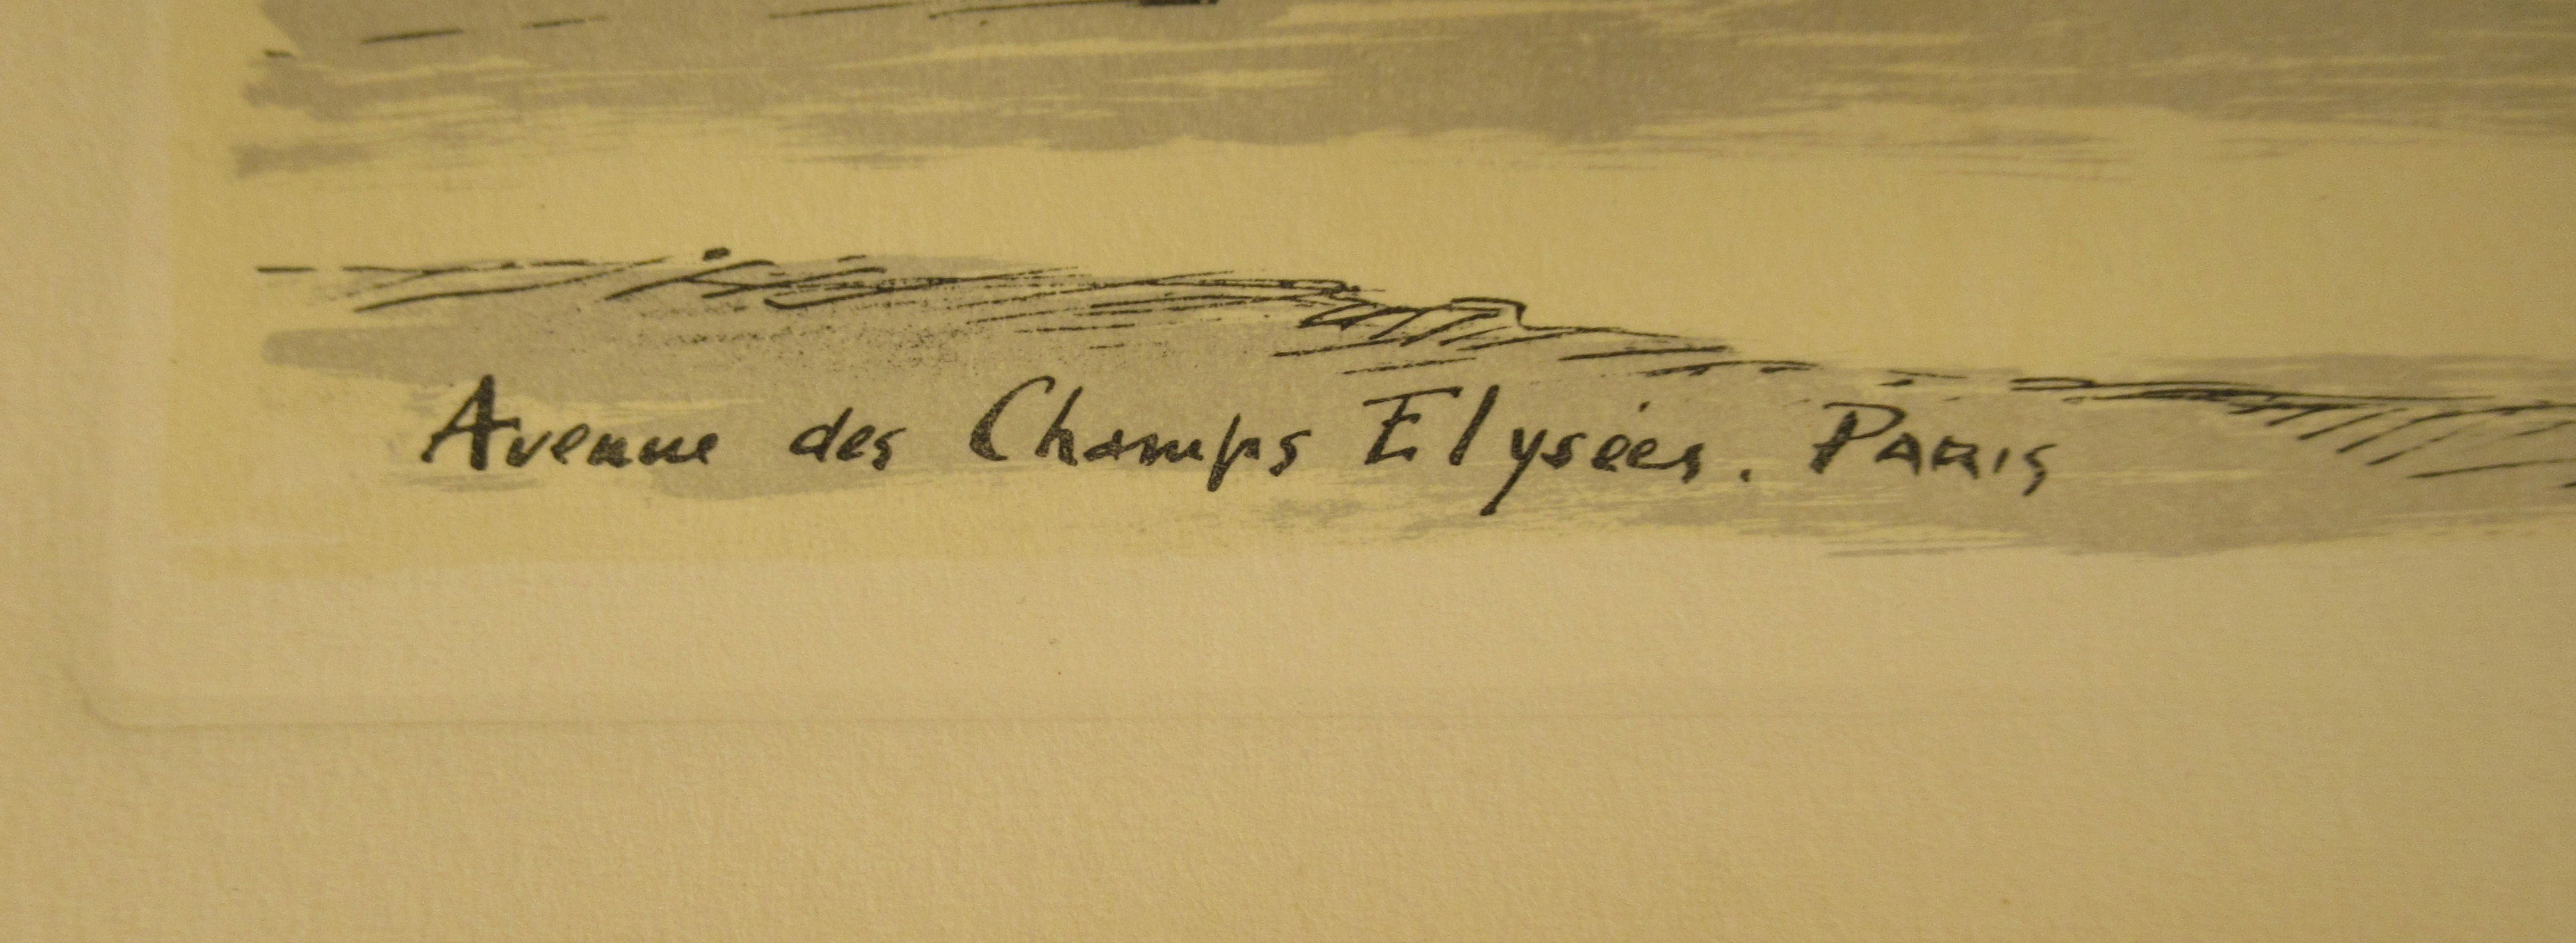 Avenue des Champs Elysées. Paris